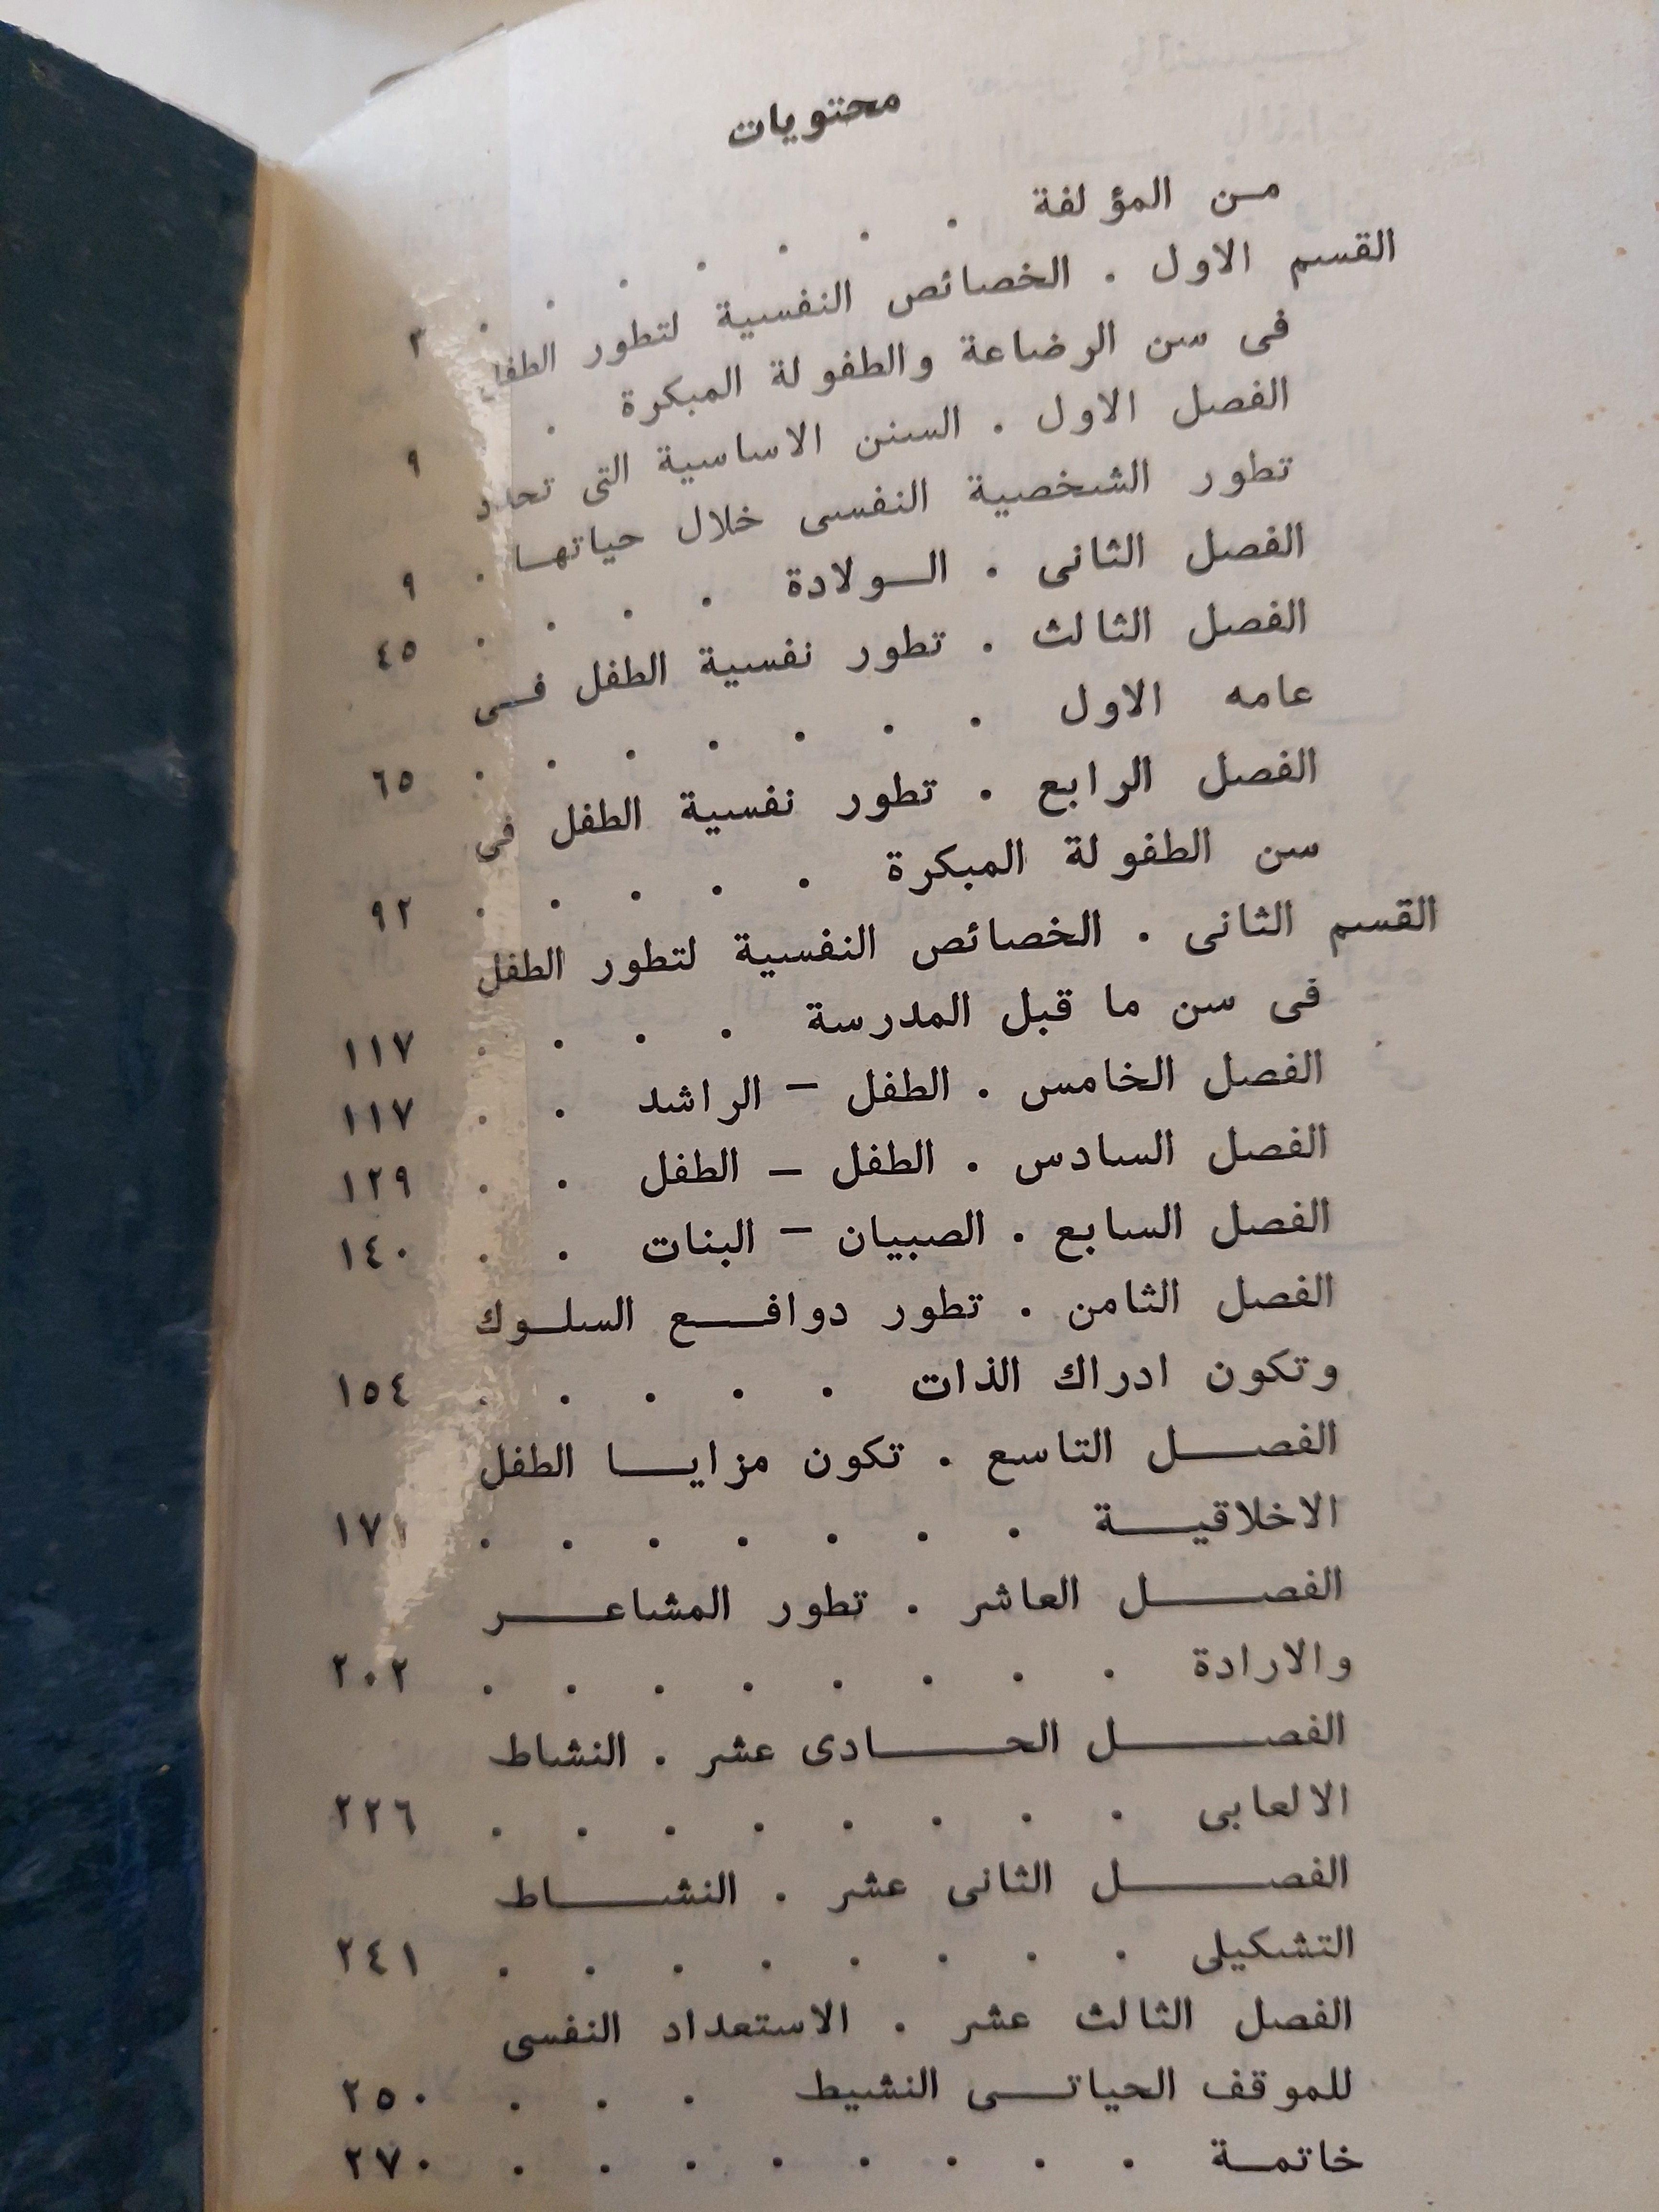 محتويات
من المؤلفة . . . . . . . ٣
القسم الاول . الخصائص النفسية لتطور الطفل
فى سن الرضاعة والطفولة المبكرة . ٩
الفصل الاول . السنن الاساسية التى تحدد
تطور الشخصية النفسى خلال حياتها . ٩
الفصل الثانى . الولادة . . . . ٤٥
الفصل الثالث . تطور نفسية الطفل فى
عامه الاول . . . . . . . ٦٥
الفصل الرابع . تطور نفسية الطفل فى
سن الطفولة المبكرة . . . . . ٩٢
القسم الثانى . الخصائص النفسية لتطور الطفل
فى سن ما قبل المدرسة . . . . ١١٧
الفصل الخامس . الطفل – الراشد . . ١١٧
الفصل السادس . الطفل – الطفل . . ١٢٩
الفصل السابع . الصبيان – البنات . . ١٤٠
الفصل الثامن . تطور دوافع السلوك
وتكون ادراك الذات . . . . . ١٥٤
الفصل التاسع . تكون مزايا الطفل
الاخلاقية . . . . . . .
الفصل العاشر . تطور المشاعر
والارادة . . . . . . . . ٢٠٢
الفصل الحادى عشر . النشاط
الالعابى . . . . . . . . ٢٢٦
الفصل الثانى عشر . النشاط
التشكيلى . . . . . . . . ٢٤١
الفصل الثالث عشر . الاستعداد النفسى
للموقف الحياتى النشيط . . . ٢٥٠
خاتمة . . . . . . . . ٢٧٠